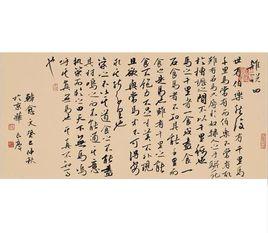 雜說四
世有伯樂然後有千里馬
千里馬常有而伯樂不常有故
雖有名馬祇辱於奴隸人之手駢死
於槽櫪之間不以千里稱也
馬之千里者一食或盡粟一
石食馬者不知其能千里而
食也是馬也雖有千里之能
食不飽力不足才美不外見
且欲與常馬等不可得安
求其能千里也
策之不以其道食之不能盡
其材鳴之而不能通其意
執策而臨之曰天下無馬
嗚呼其真無馬邪其真不知馬
也
韓愈文癸巳仲秋
於京華